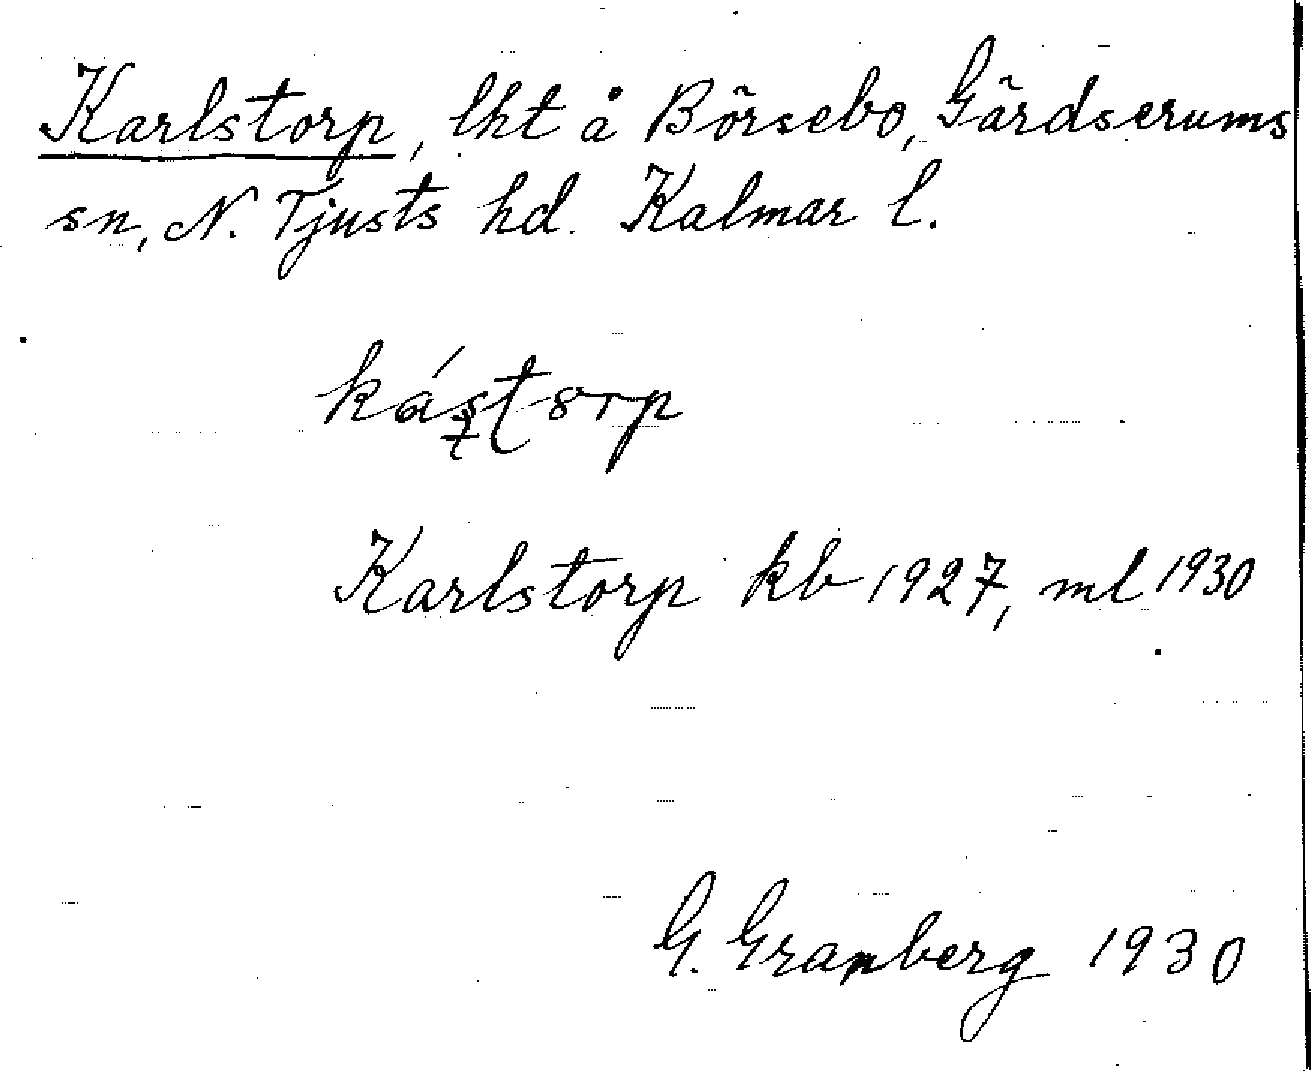 Karlstorp, lht å Börsebo, Gärdserums
sn, N. Tjusts hd. Kalmar l.
Karlstorp kb 1927, ml 1930
G. Granberg 1930